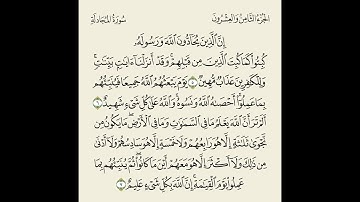 الجزء الثامن والعشرون
سورة المجادلة
إِنَّ ٱلَّذِينَ يُحَآدُّونَ ٱللَّهَ وَرَسُولَهُۥ
كُبِتُوا۟ كَمَا كُبِتَ ٱلَّذِينَ مِن قَبْلِهِمْ ۚ وَقَدْ أَنزَلْنَآ ءَايَٰتٍۭ بَيِّنَٰتٍ ۚ
وَلِلْكَٰفِرِينَ عَذَابٌ مُّهِينٌ ٥ يَوْمَ يَبْعَثُهُمُ ٱللَّهُ جَمِيعًا فَيُنَبِّئُهُم
بِمَا عَمِلُوٓا۟ ۚ أَحْصَىٰهُ ٱللَّهُ وَنَسُوهُ ۚ وَٱللَّهُ عَلَىٰ كُلِّ شَىْءٍ شَهِيدٌ ٦
أَلَمْ تَرَ أَنَّ ٱللَّهَ يَعْلَمُ مَا فِى ٱلسَّمَٰوَٰتِ وَمَا فِى ٱلْأَرْضِ ۖ مَا يَكُونُ مِن
نَّجْوَىٰ ثَلَٰثَةٍ إِلَّا هُوَ رَابِعُهُمْ وَلَا خَمْسَةٍ إِلَّا هُوَ سَادِسُهُمْ وَلَآ أَدْنَىٰ
مِن ذَٰلِكَ وَلَآ أَكْثَرَ إِلَّا هُوَ مَعَهُمْ أَيْنَ مَا كَانُوا۟ ۖ ثُمَّ يُنَبِّئُهُم بِمَا
عَمِلُوا۟ يَوْمَ ٱلْقِيَٰمَةِ ۚ إِنَّ ٱللَّهَ بِكُلِّ شَىْءٍ عَلِيمٌ ٧